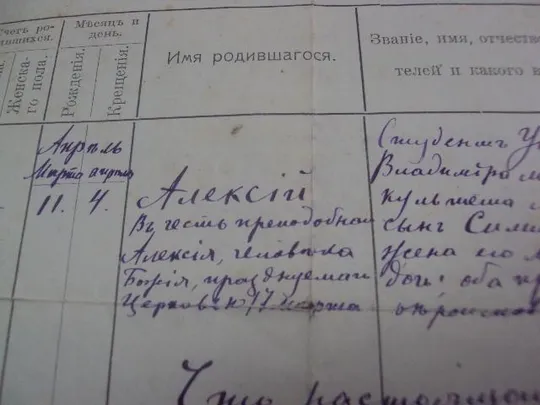 Счетъ ро-
дившихся.
Женска-
го пола.
Мѣсяцъ и
день.
Рожденія.
Крещенія.
Имя родившагося.
Званіе, имя, отчество
телей и какого в
Апрѣль
Марта
апрѣль
11.
4.
Алексій
Въ честь преподобнаго
Алексія, человѣка
Божія, празднуемаго
Церковію 17 марта
Студентъ
Владимір
сынъ
жена его
оба пр
Что настоящ